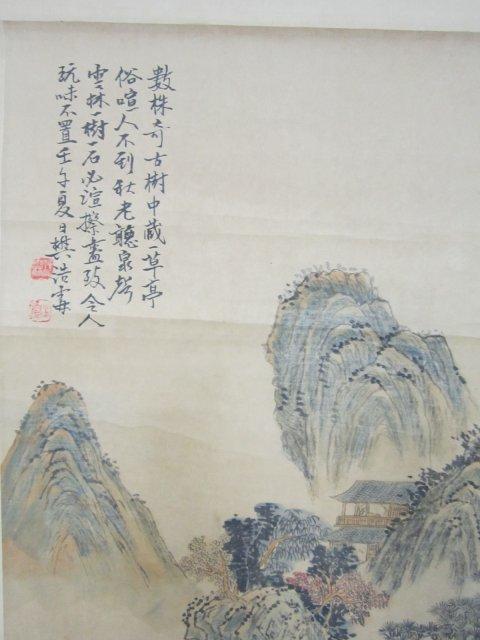 數株奇古樹中藏一草亭
俗喧人不到秋老聽泉聲
雲林一樹一石必渲擦盡致令人
玩味不置壬午夏日樊浩霖